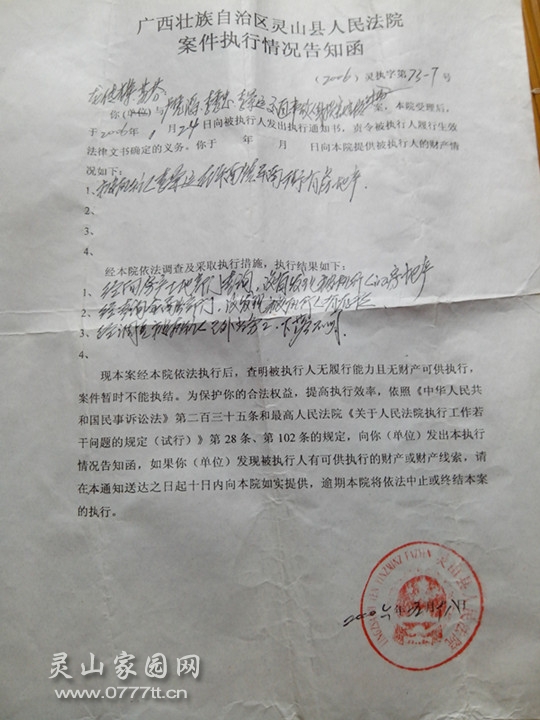 广西壮族自治区灵山县人民法院
案件执行情况告知函
（2006）灵执字第73-7号
你（单位）与 案，本院受理后，
于2006年1月24日向被执行人发出执行通知书，责令被执行人履行生效
法律文书确定的义务。你于 年 月 日向本院提供被执行人的财产情
况如下：
1、
2、
3、
4、
经本院依法调查及采取执行措施，执行结果如下：
1、经向房产土地部门查询，没有发现被执行人的房地产
2、经查询金融部门，没发现被执行人有存款
3、经调查被执行人已外出务工，下落不明
4、
现本案经本院依法执行后，查明被执行人无履行能力且无财产可供执行，
案件暂时不能执结。为保护你的合法权益，提高执行效率，依照《中华人民共
和国民事诉讼法》第二百三十五条和最高人民法院《关于人民法院执行工作若
干问题的规定（试行）》第28条、第102条的规定，向你（单位）发出本执行
情况告知函，如果你（单位）发现被执行人有可供执行的财产或财产线索，请
在本通知送达之日起十日内向本院如实提供，逾期本院将依法中止或终结本案
的执行。
灵山县人民法院
灵山家园网
www.0777tt.cn